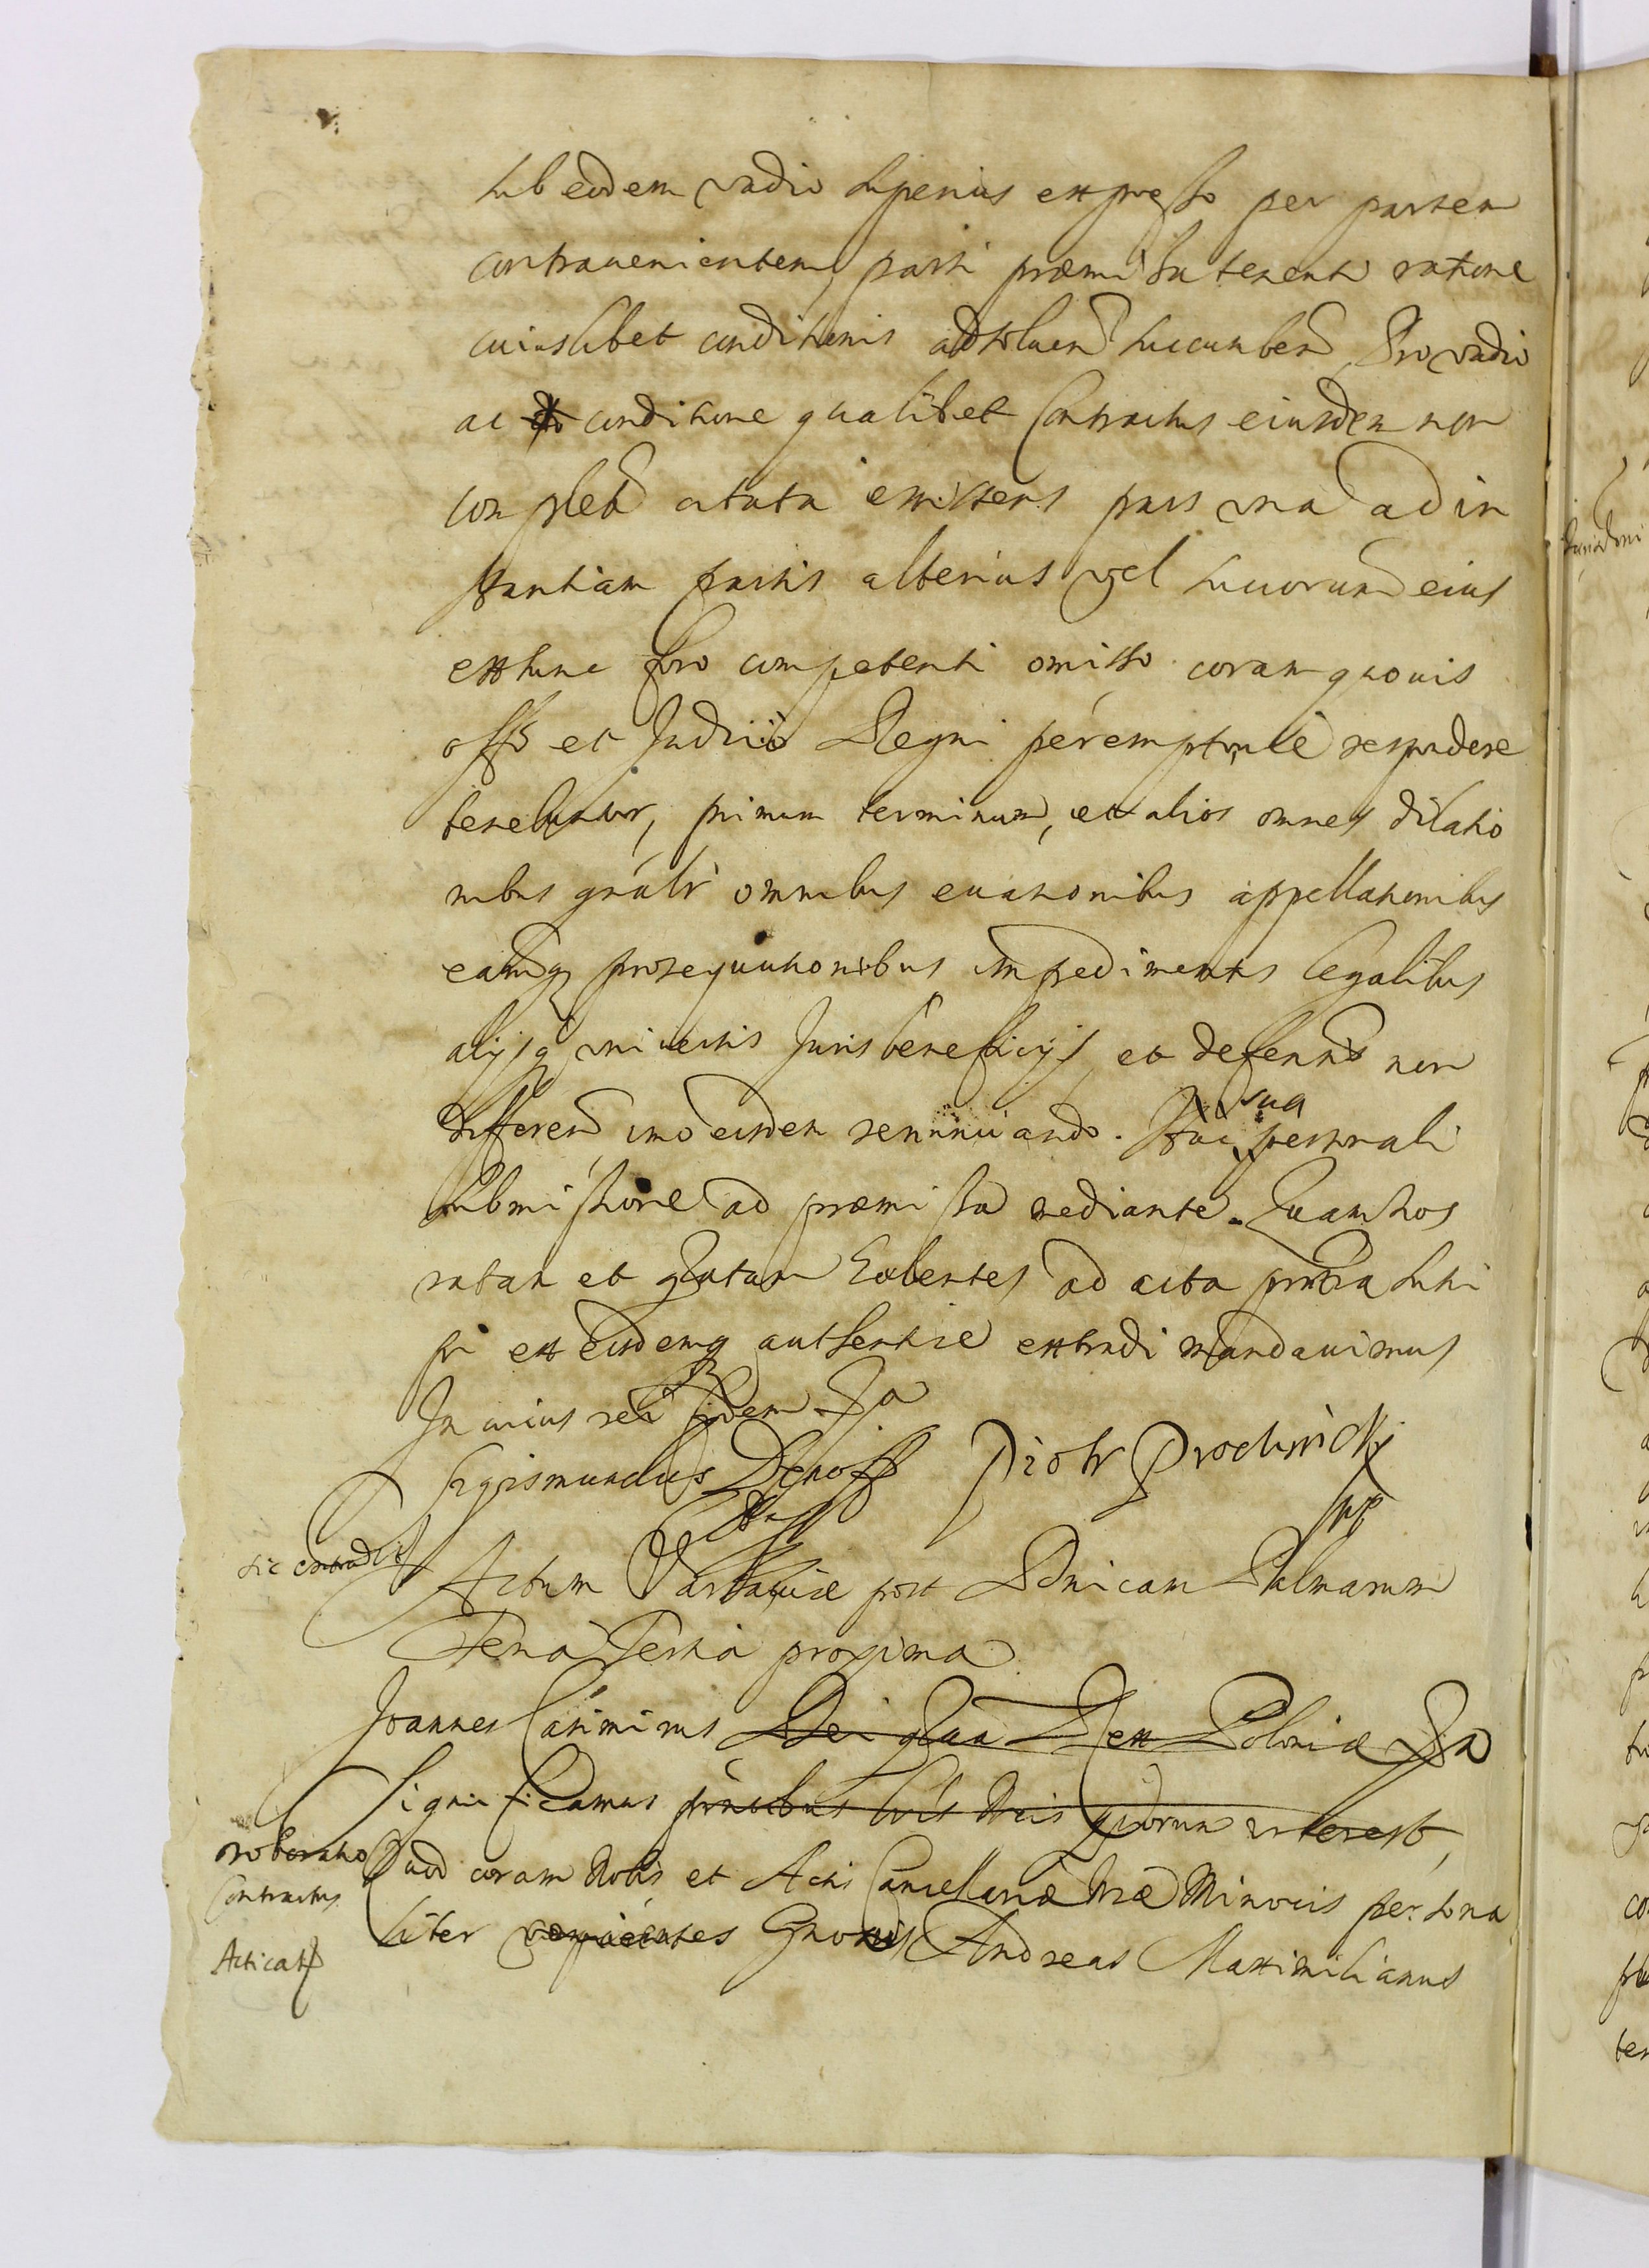 sub eodem vadio superius expresso per partem
contrauenientem, parti præmissa tenenti ratione
cuiuslibet conditionis adsoluen succumben Pro vadio
ac conditione qualibet Contractus eiusdem non
complet citata existens pars vna ad in
stantiam partis alterius vel succorum eius
extunc foro competenti omisso coram quouis
offo et Judicio Regni péremptorie respondere
tenebuntur, primum terminum, et alios omnes dilatio
nibus gnálr omnibus euationibus appellationibus
earumq prosequutionibus impedimentis legalibus
alijsq vniuersis Juris beneficijs et defensis non
differen imo eisdem renunciando. Stac sua personali
submissione ad præmissa mediante. Quam hos
ratam et gratam habentes ad acta pntia susci
pi et eisdemq authentice extradi mandauimus
In cuius rei fidem Ja
Sigismundus Denoff Piotr Prochnicki
mp
sic extradit
Actum Varsauiæ post Dnicam Palmarum
Feria Tertia proxima
Joannes Casimirus Dei gtia Rex Poloniæ Ja
Significamus pntibus lris Nris quorum interest,
roboratio Contractus
Quod coram Nobis et Actis Cancellariæ Nræ Minoris persona
Acticat
liter venientes Gnosus Andreas Maximilianus